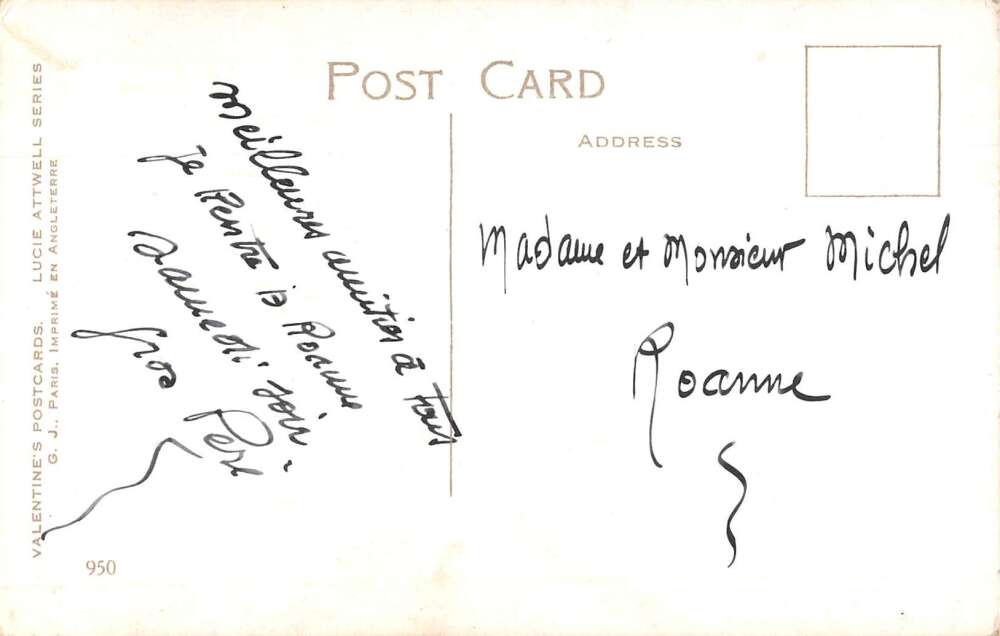 POST CARD
ADDRESS
VALENTINE'S POSTCARDS. LUCIE ATTWELL SERIES
G. J., PARIS. IMPRIMÉ EN ANGLETERRE
Meilleures amitiés à tous
je Rentre à Roanne
Samedi soir.
Gros
Madame et Monsieur Michel
Roanne
950